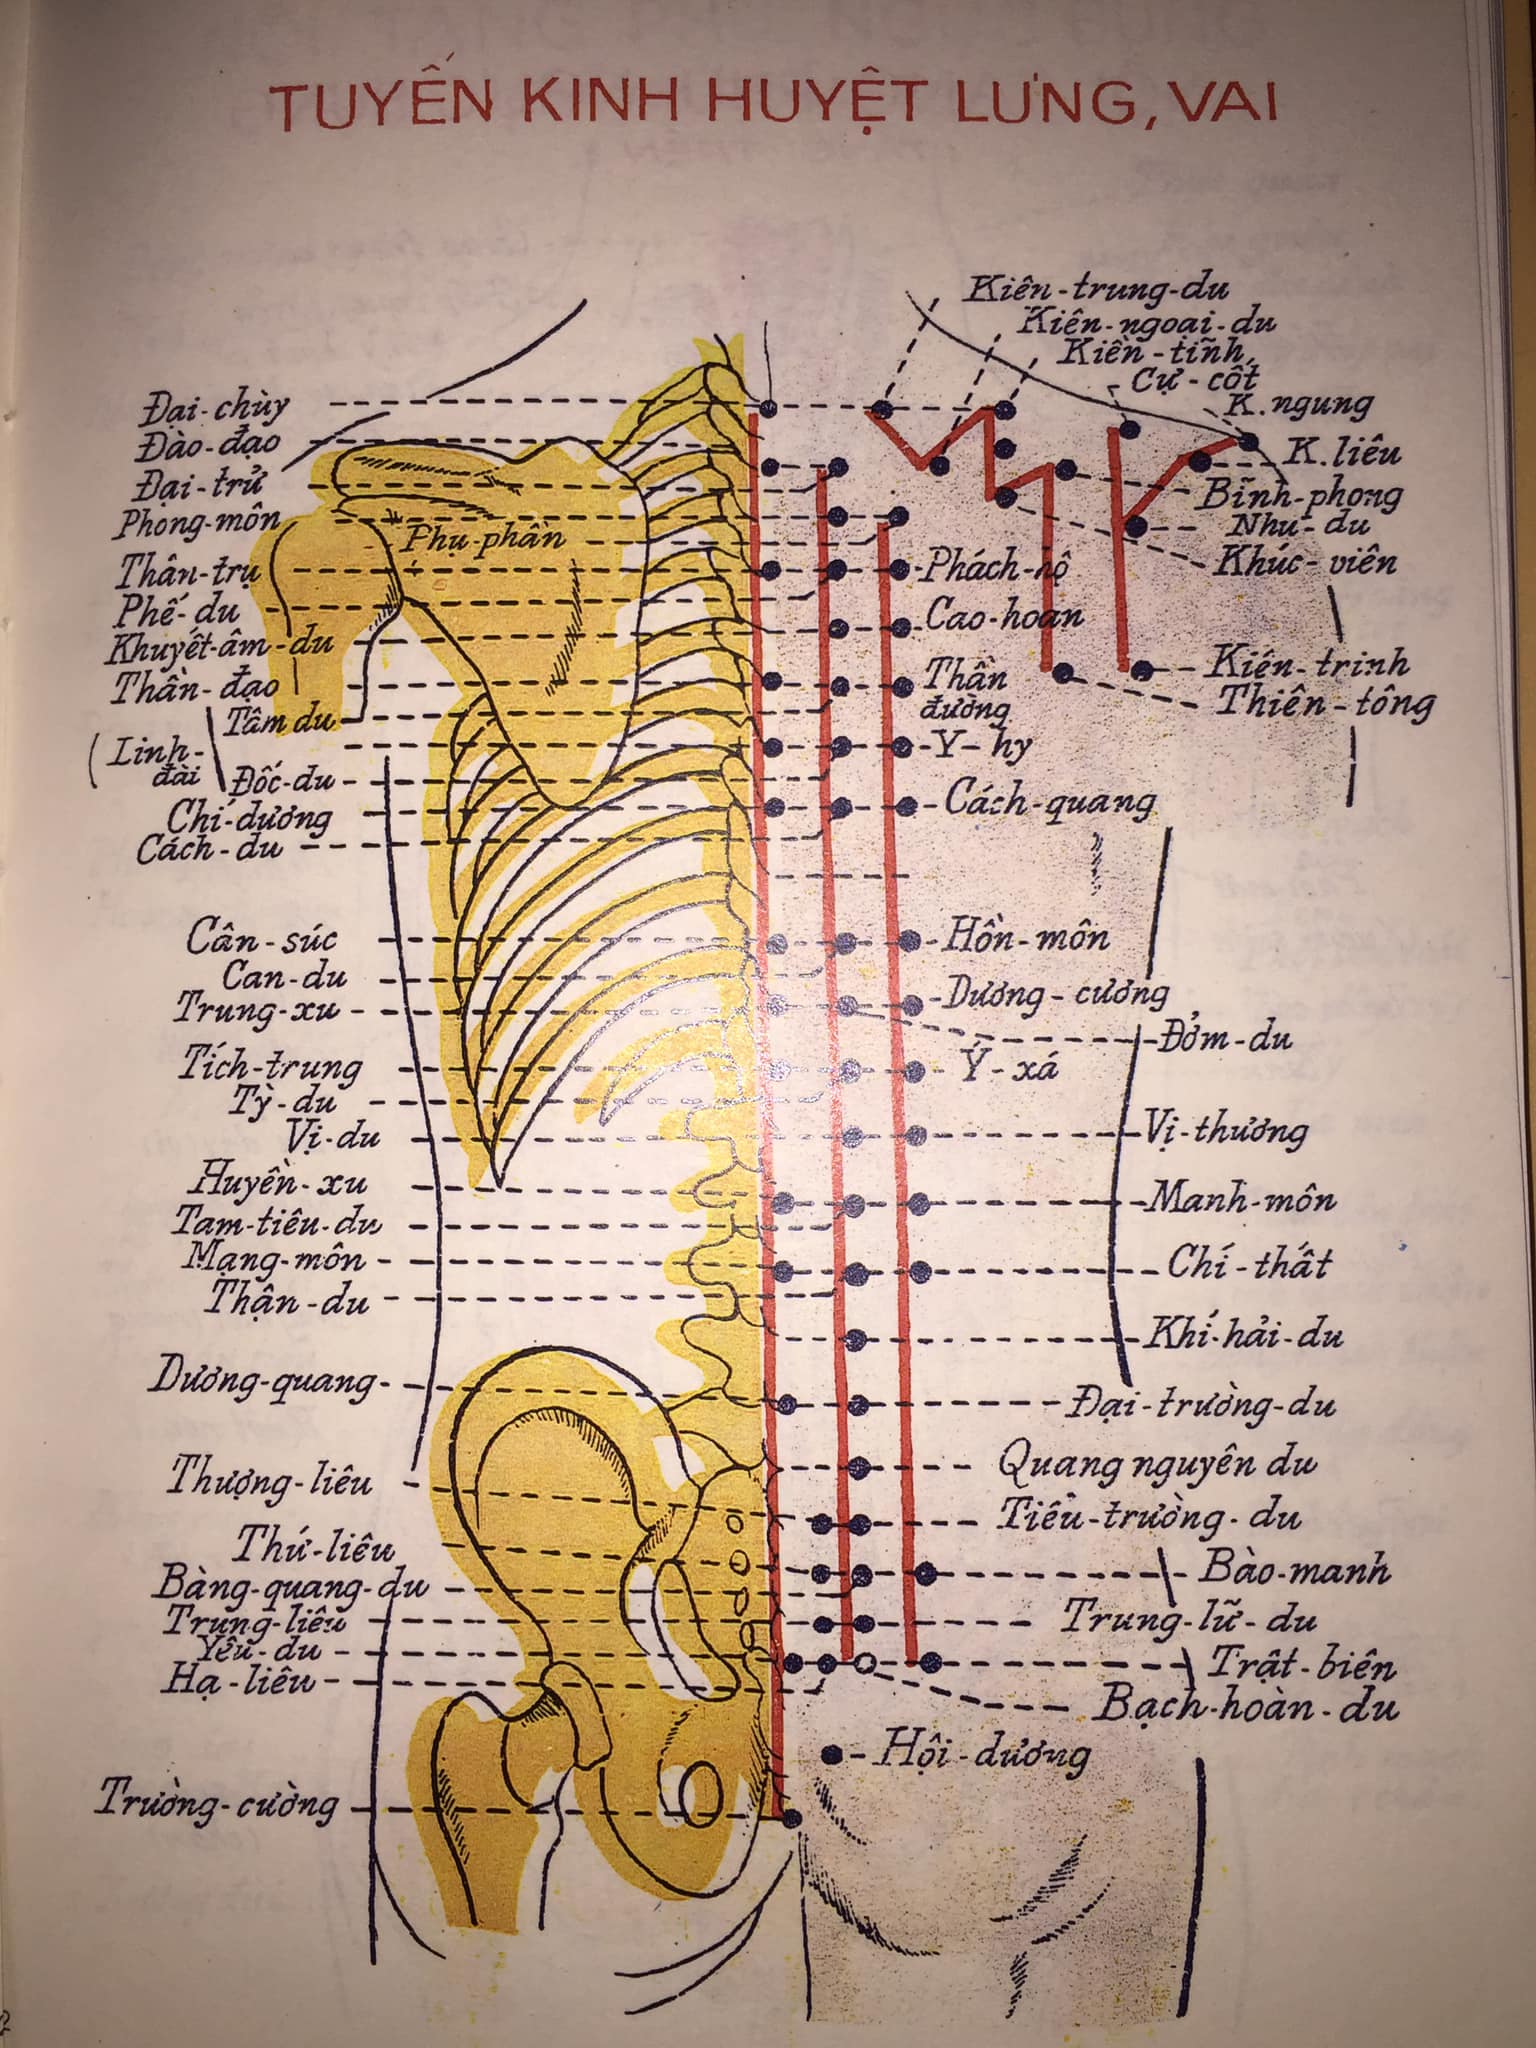 TUYẾN KINH HUYỆT LƯNG, VAI
Kiên-trung-du
Kiên-ngoại-du
Kiên-tĩnh
Cự-cốt
K.ngung
K.liêu
Bĩnh-phong
Nhu-du
Khúc-viên
Kiên-trinh
Thiên-tông
Đại-chùy
Đào-đạo
Đại-trử
Phong-môn
Phụ-phần
Thân-trụ
Phế-du
Khuyết-âm-du
Thần-đạo
Tâm du
(Linh-
đài
Đốc-du
Chí-dương
Cách-du
Cân-súc
Can-du
Trung-xu
Tích-trung
Tỳ-du
Vị-du
Huyền-xu
Tam-tiêu-du
Mạng-môn
Thận-du
Dương-quang
Thượng-liêu
Thứ-liêu
Bàng-quang-du
Trung-liêu
Yêu-du
Hạ-liêu
Trường-cường
Phách-hộ
Cao-hoan
Thần
đường
Y-hy
Cách-quang
Hồn-môn
Dương-cương
Đởm-du
Ý-xá
Vị-thương
Manh-môn
Chí-thất
Khí-hải-du
Đại-trường-du
Quang nguyên du
Tiểu-trường-du
Bào-manh
Trung-lữ-du
Trật-biên
Bạch-hoàn-du
Hội-dương